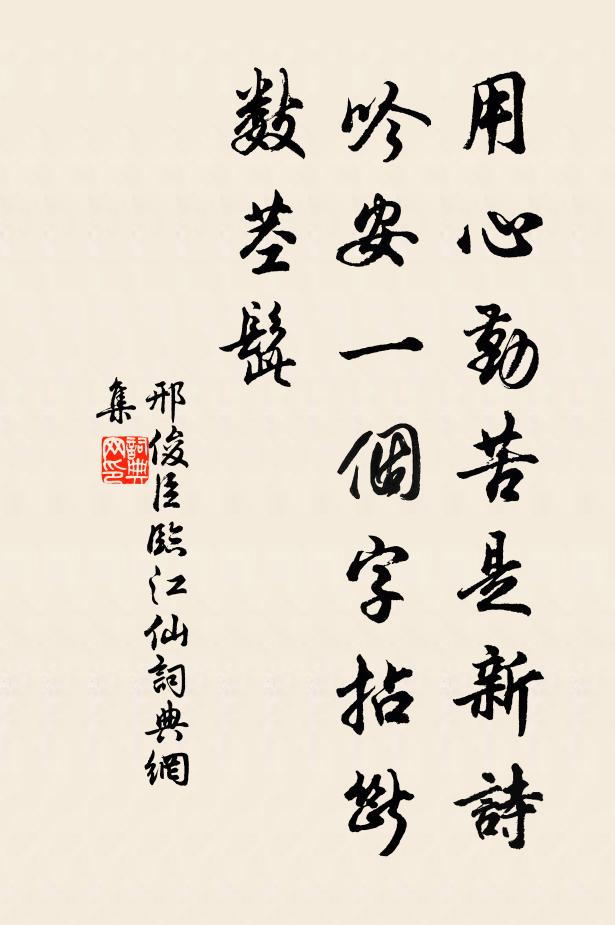 用心勤苦是新詩
吟安一個字拈斷
數茎髭
邢俊臣臨江仙詞典網
集
詞典
网印